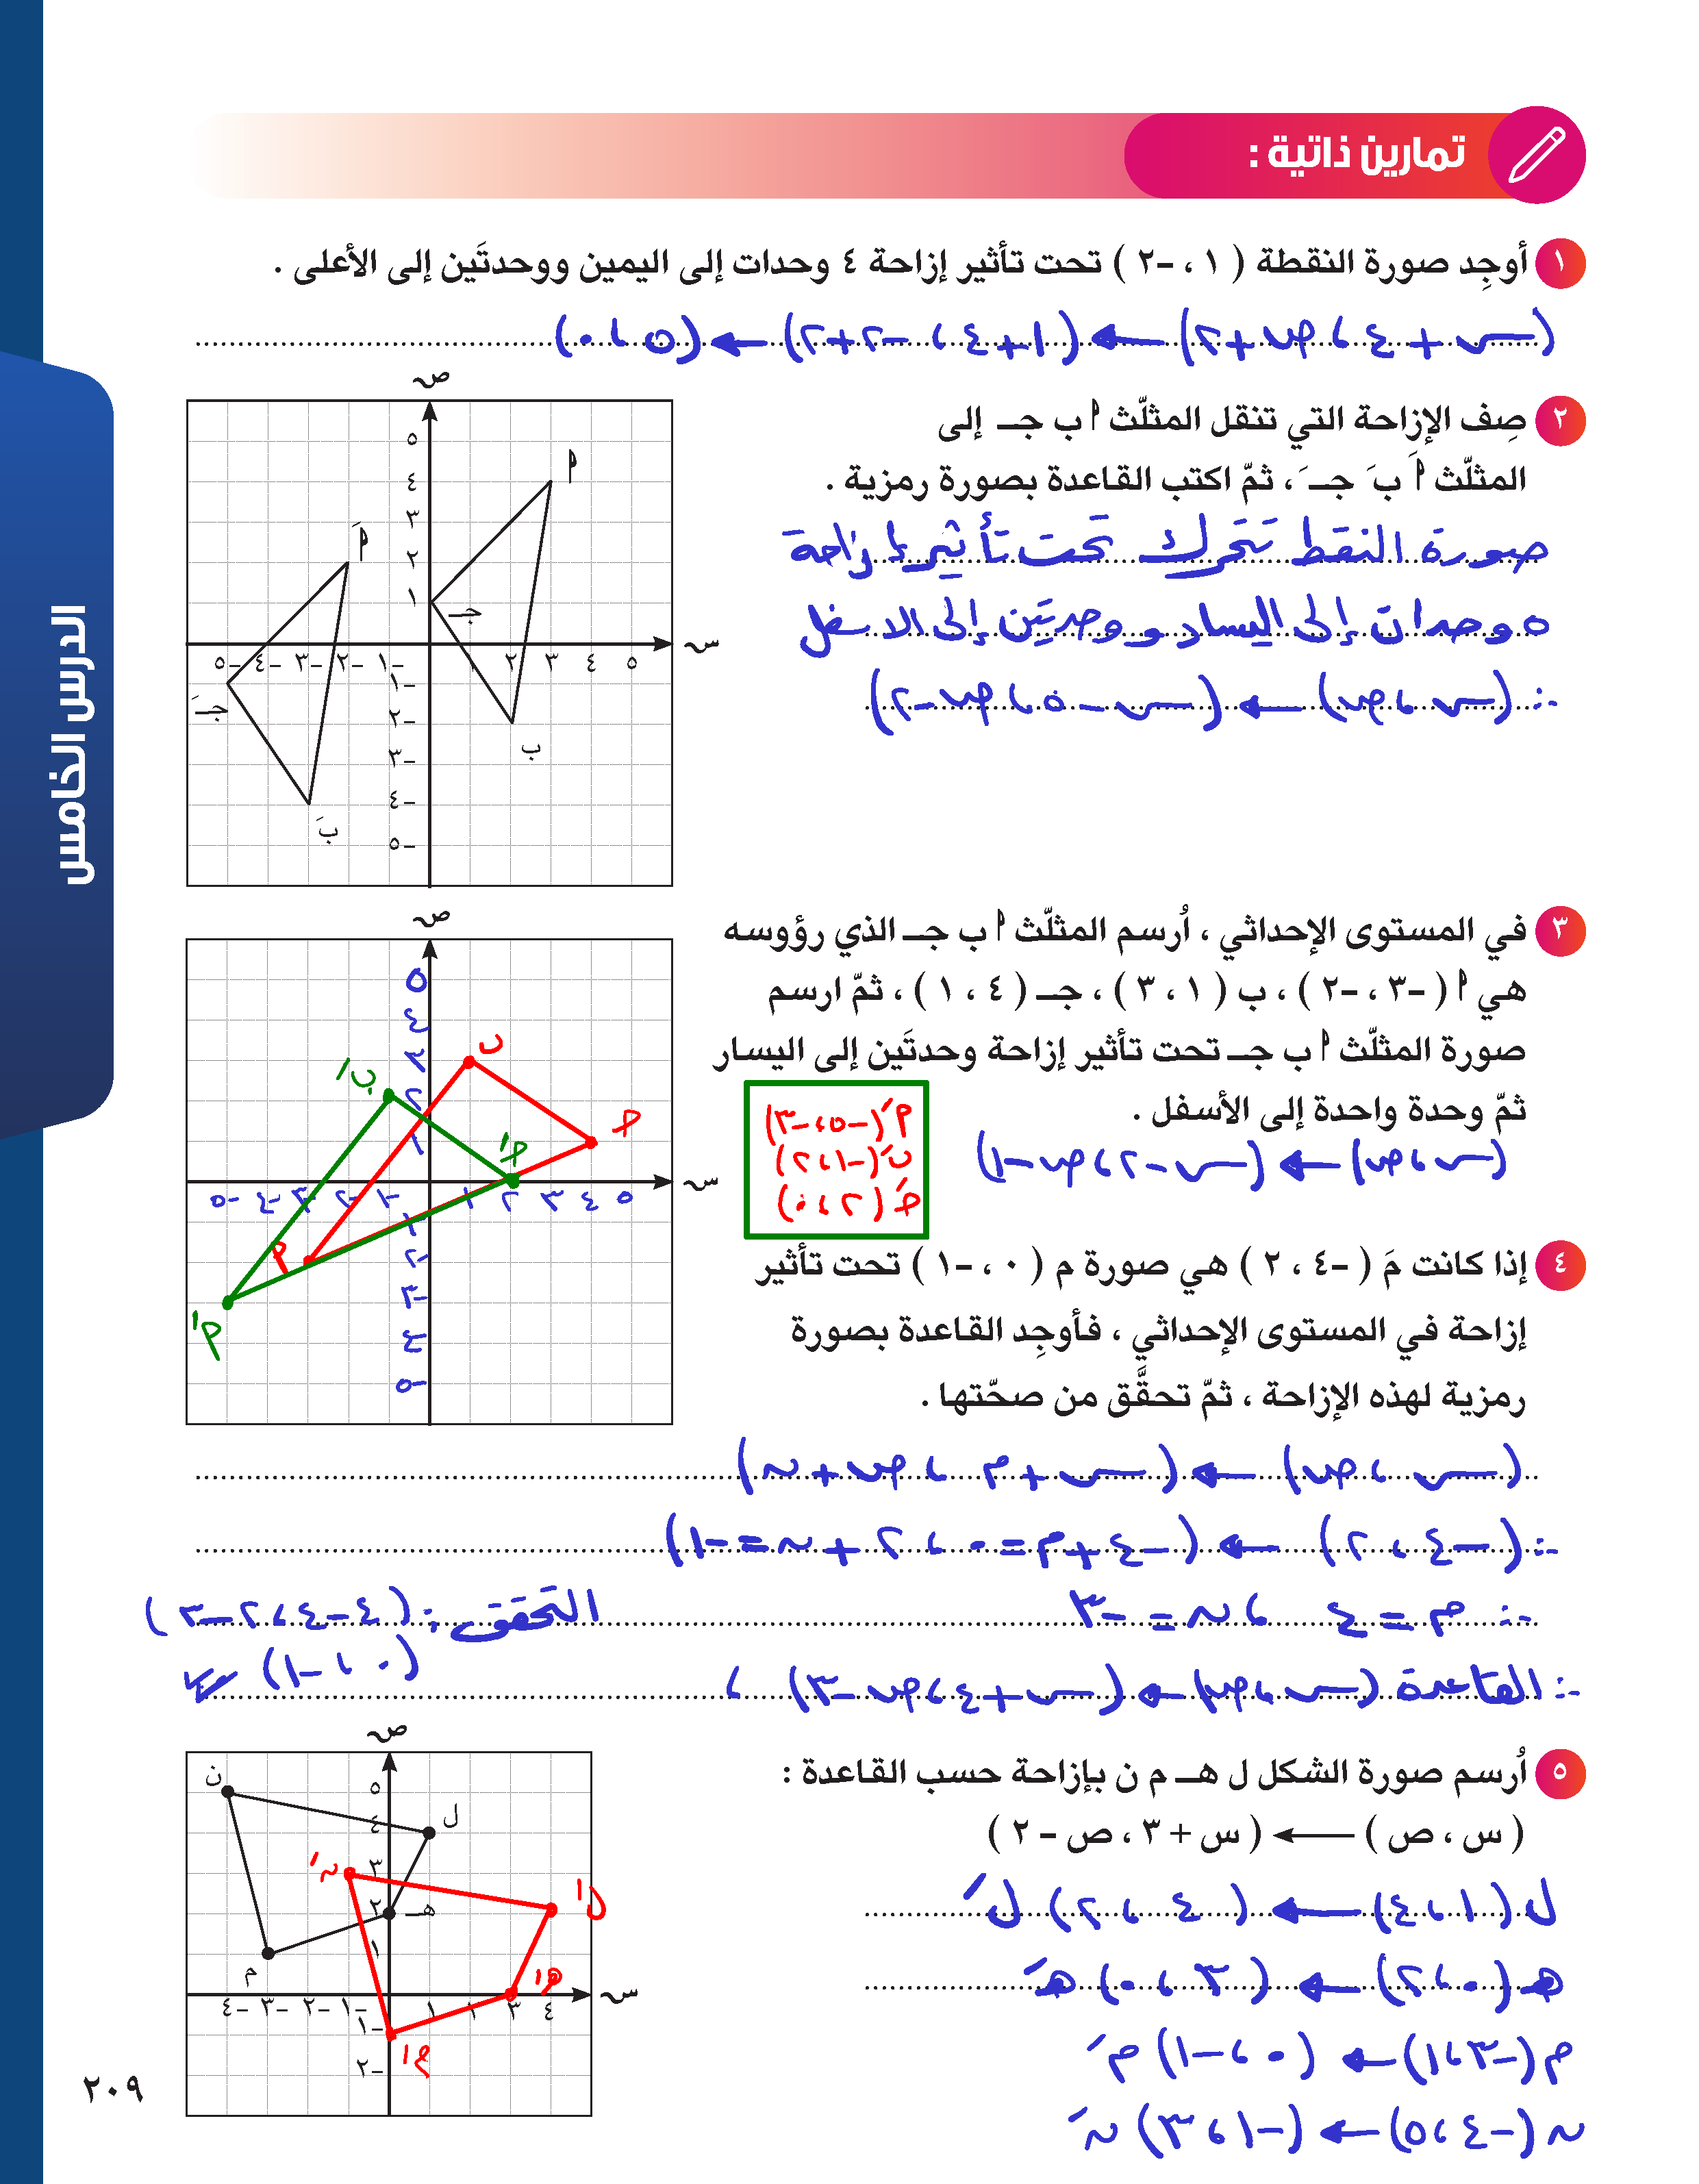 تمارين ذاتية :
١ أوجِد صورة النقطة ( ١ ، -٢ ) تحت تأثير إزاحة ٤ وحدات إلى اليمين ووحدتَين إلى الأعلى .
(س + ٤ ، ص + ٢) ← (١ + ٤ ، -٢ + ٢) ← (٥ ، ٠)
٢ صِف الإزاحة التي تنقل المثلّث أ ب جـ إلى
المثلّث أَ بَ جـَ ، ثمّ اكتب القاعدة بصورة رمزية .
صورة النقط تتحرك تحت تأثير إزاحة
٥ وحدات إلى اليسار و وحدتين إلى الاسفل
∴ (س ، ص) ← (س - ٥ ، ص - ٢)
ص
٥
٤
٣
٢
١
-٥ -٤ -٣ -٢ -١ ١ ٢ ٣ ٤ ٥ س
-١
-٢
-٣
-٤
-٥
أ
ب
جـ
أَ
بَ
جـَ
٣ في المستوى الإحداثي ، اُرسم المثلّث أ ب جـ الذي رؤوسه
هي أ ( -٣ ، -٢ ) ، ب ( ١ ، ٣ ) ، جـ ( ٤ ، ١ ) ، ثمّ ارسم
صورة المثلّث أ ب جـ تحت تأثير إزاحة وحدتَين إلى اليسار
ثمّ وحدة واحدة إلى الأسفل .
(س ، ص) ← (س - ٢ ، ص - ١)
أَ (-٥ ، -٣)
بَ (-١ ، ٢)
جـَ (٢ ، ٠)
ص
٥
٤
٣
٢
١
-٥ -٤ -٣ -٢ -١ ١ ٢ ٣ ٤ ٥ س
-١
-٢
-٣
-٤
-٥
ب
جـ
أ
بَ
جـَ
أَ
٤ إذا كانت مَ ( -٤ ، ٢ ) هي صورة م ( ٠ ، -١ ) تحت تأثير
إزاحة في المستوى الإحداثي ، فأوجِد القاعدة بصورة
رمزية لهذه الإزاحة ، ثمّ تحقَّق من صحّتها .
(س ، ص) ← (س + م ، ص + ن)
∴ (-٤ ، ٢) ← (-٤ + م = ٠ ، ٢ + ن = -١)
∴ م = ٤ ، ن = -٣
التحقق : (٤ - ٤ ، ٢ - ٣)
(٠ ، -١)
∴ القاعدة (س ، ص) ← (س + ٤ ، ص - ٣) ،
٥ اُرسم صورة الشكل ل هـ م ن بإزاحة حسب القاعدة :
( س ، ص ) ← ( س + ٣ ، ص - ٢ )
ل (١ ، ٤) ← (٤ ، ٢) لَ
هـ (٠ ، ٢) ← (٣ ، ٠) هـَ
م (-٣ ، ١) ← (٠ ، -١) مَ
ن (-٤ ، ٥) ← (-١ ، ٣) نَ
ص
٥
٤
٣
٢
١
-٤ -٣ -٢ -١ ١ ٣ ٤ س
-١
-٢
ن
ل
هـ
م
نَ
لَ
هـَ
مَ
الدرس الخامس
٢٠٩